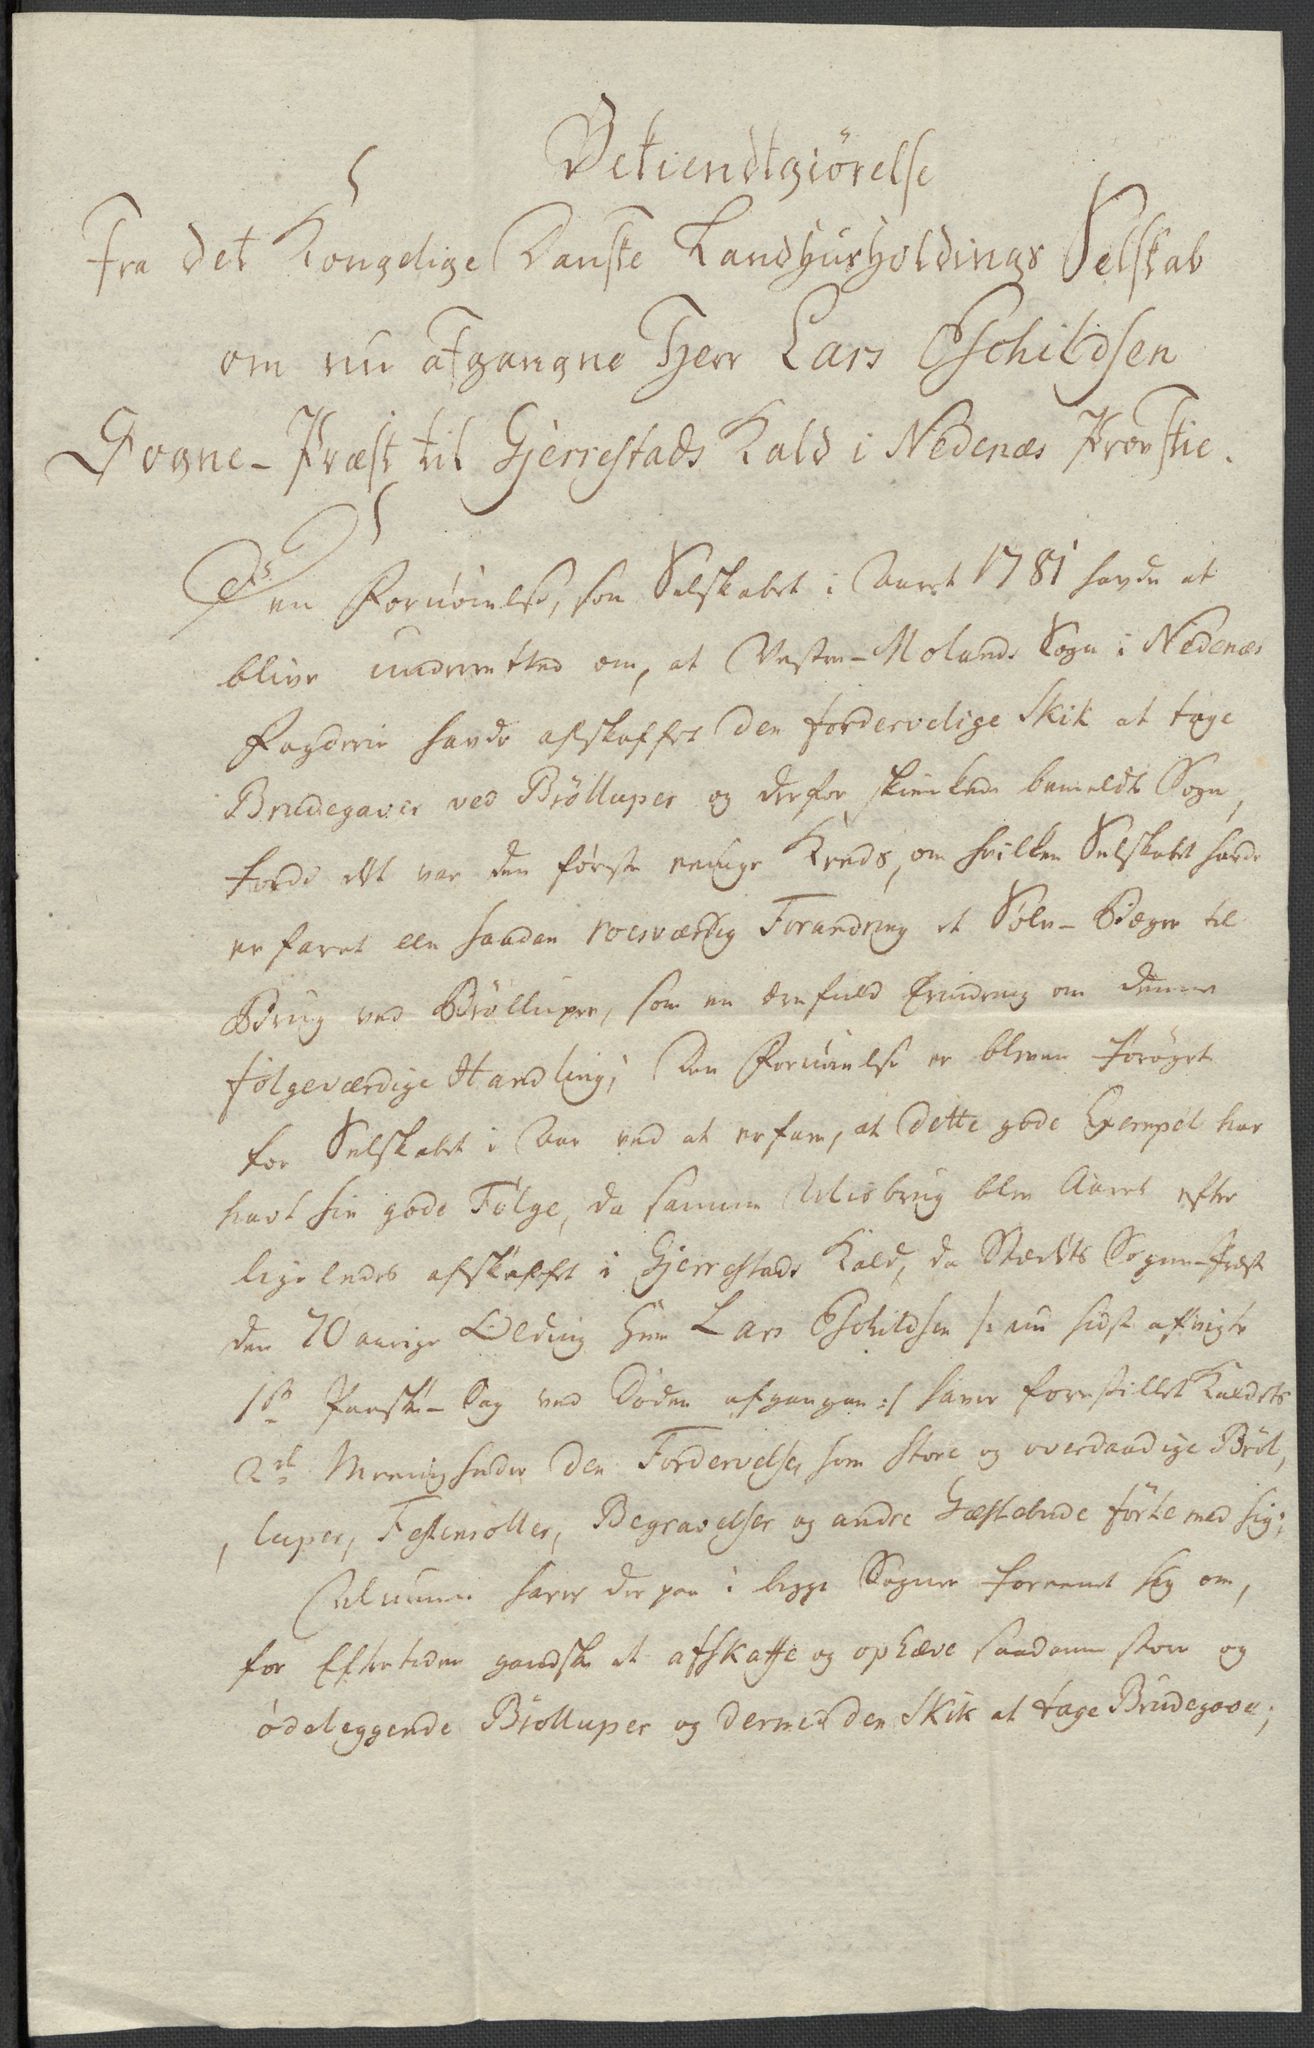 Bekiendtgiørelse
Fra det Kongelige Danske Landhuusholdings Selskab
om nu afgangne Herr Lars Eschildsen
Sogne-Præst til Gjerrestads Kald i Nedenæs Provstie.
Den Fornøielse, som Selskabet i Aaret 1781 havde at
blive underretted om, at Vestre-Molands Sogn i Nedenæs
Fogderie havde afskaffet den fordervelige Skik at tage
Brudegaver ved Bröllupper og derfor skienkede bemeldte Sogn,
fordi det var den første eenige Kreds, om hvilken Selskabet havde
erfaret een saadan roesværdig Forandring et Sølv-Bæger til
Brug ved Bröllupper, som en ærefuld Erindring om denne
følgeværdige Handling; Den Fornøielse er bleven forøget
for Selskabet i Aar ved at erfare, at dette gode Exempel har
havt sin gode Følge, da samme Misbrug blev Aaret efter
ligeledes afskaffet i Gjerrestads Kald, da Stædets Sogne-Præst
den 70 aarige Olding Herr Lars Eschildsen /: nu sidst afvigte
1ste Paaske-Dag ved Døden afgangen :/ haver forestillet Kaldets
2de Meenigheder den Fordervelse, som store og overdaadige Bröl,
, luper, Festensøller, Begravelser og andre Gæstebude förte med sig;
Almuen haver derpaa i begge Sogner foreenet sig om,
for Eftertiden gandske at afskaffe og ophæve saadanne store og
ödeleggende Bröllupper og dermed den Skik at tage Brudegaver;